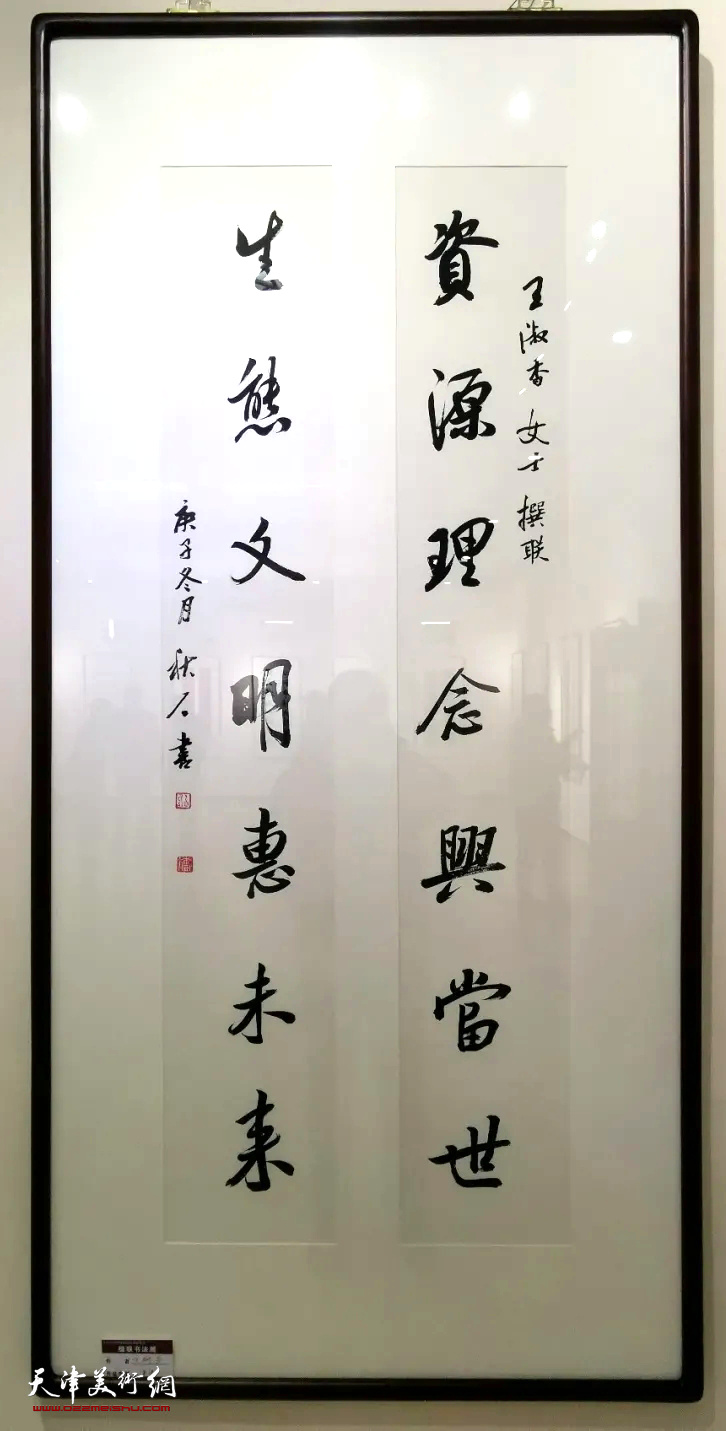 王淑香女士撰联
資源理念興當世
生態文明惠未来
庚子冬月秋石書
楹联书法展
天津美術網
www.022meishu.com